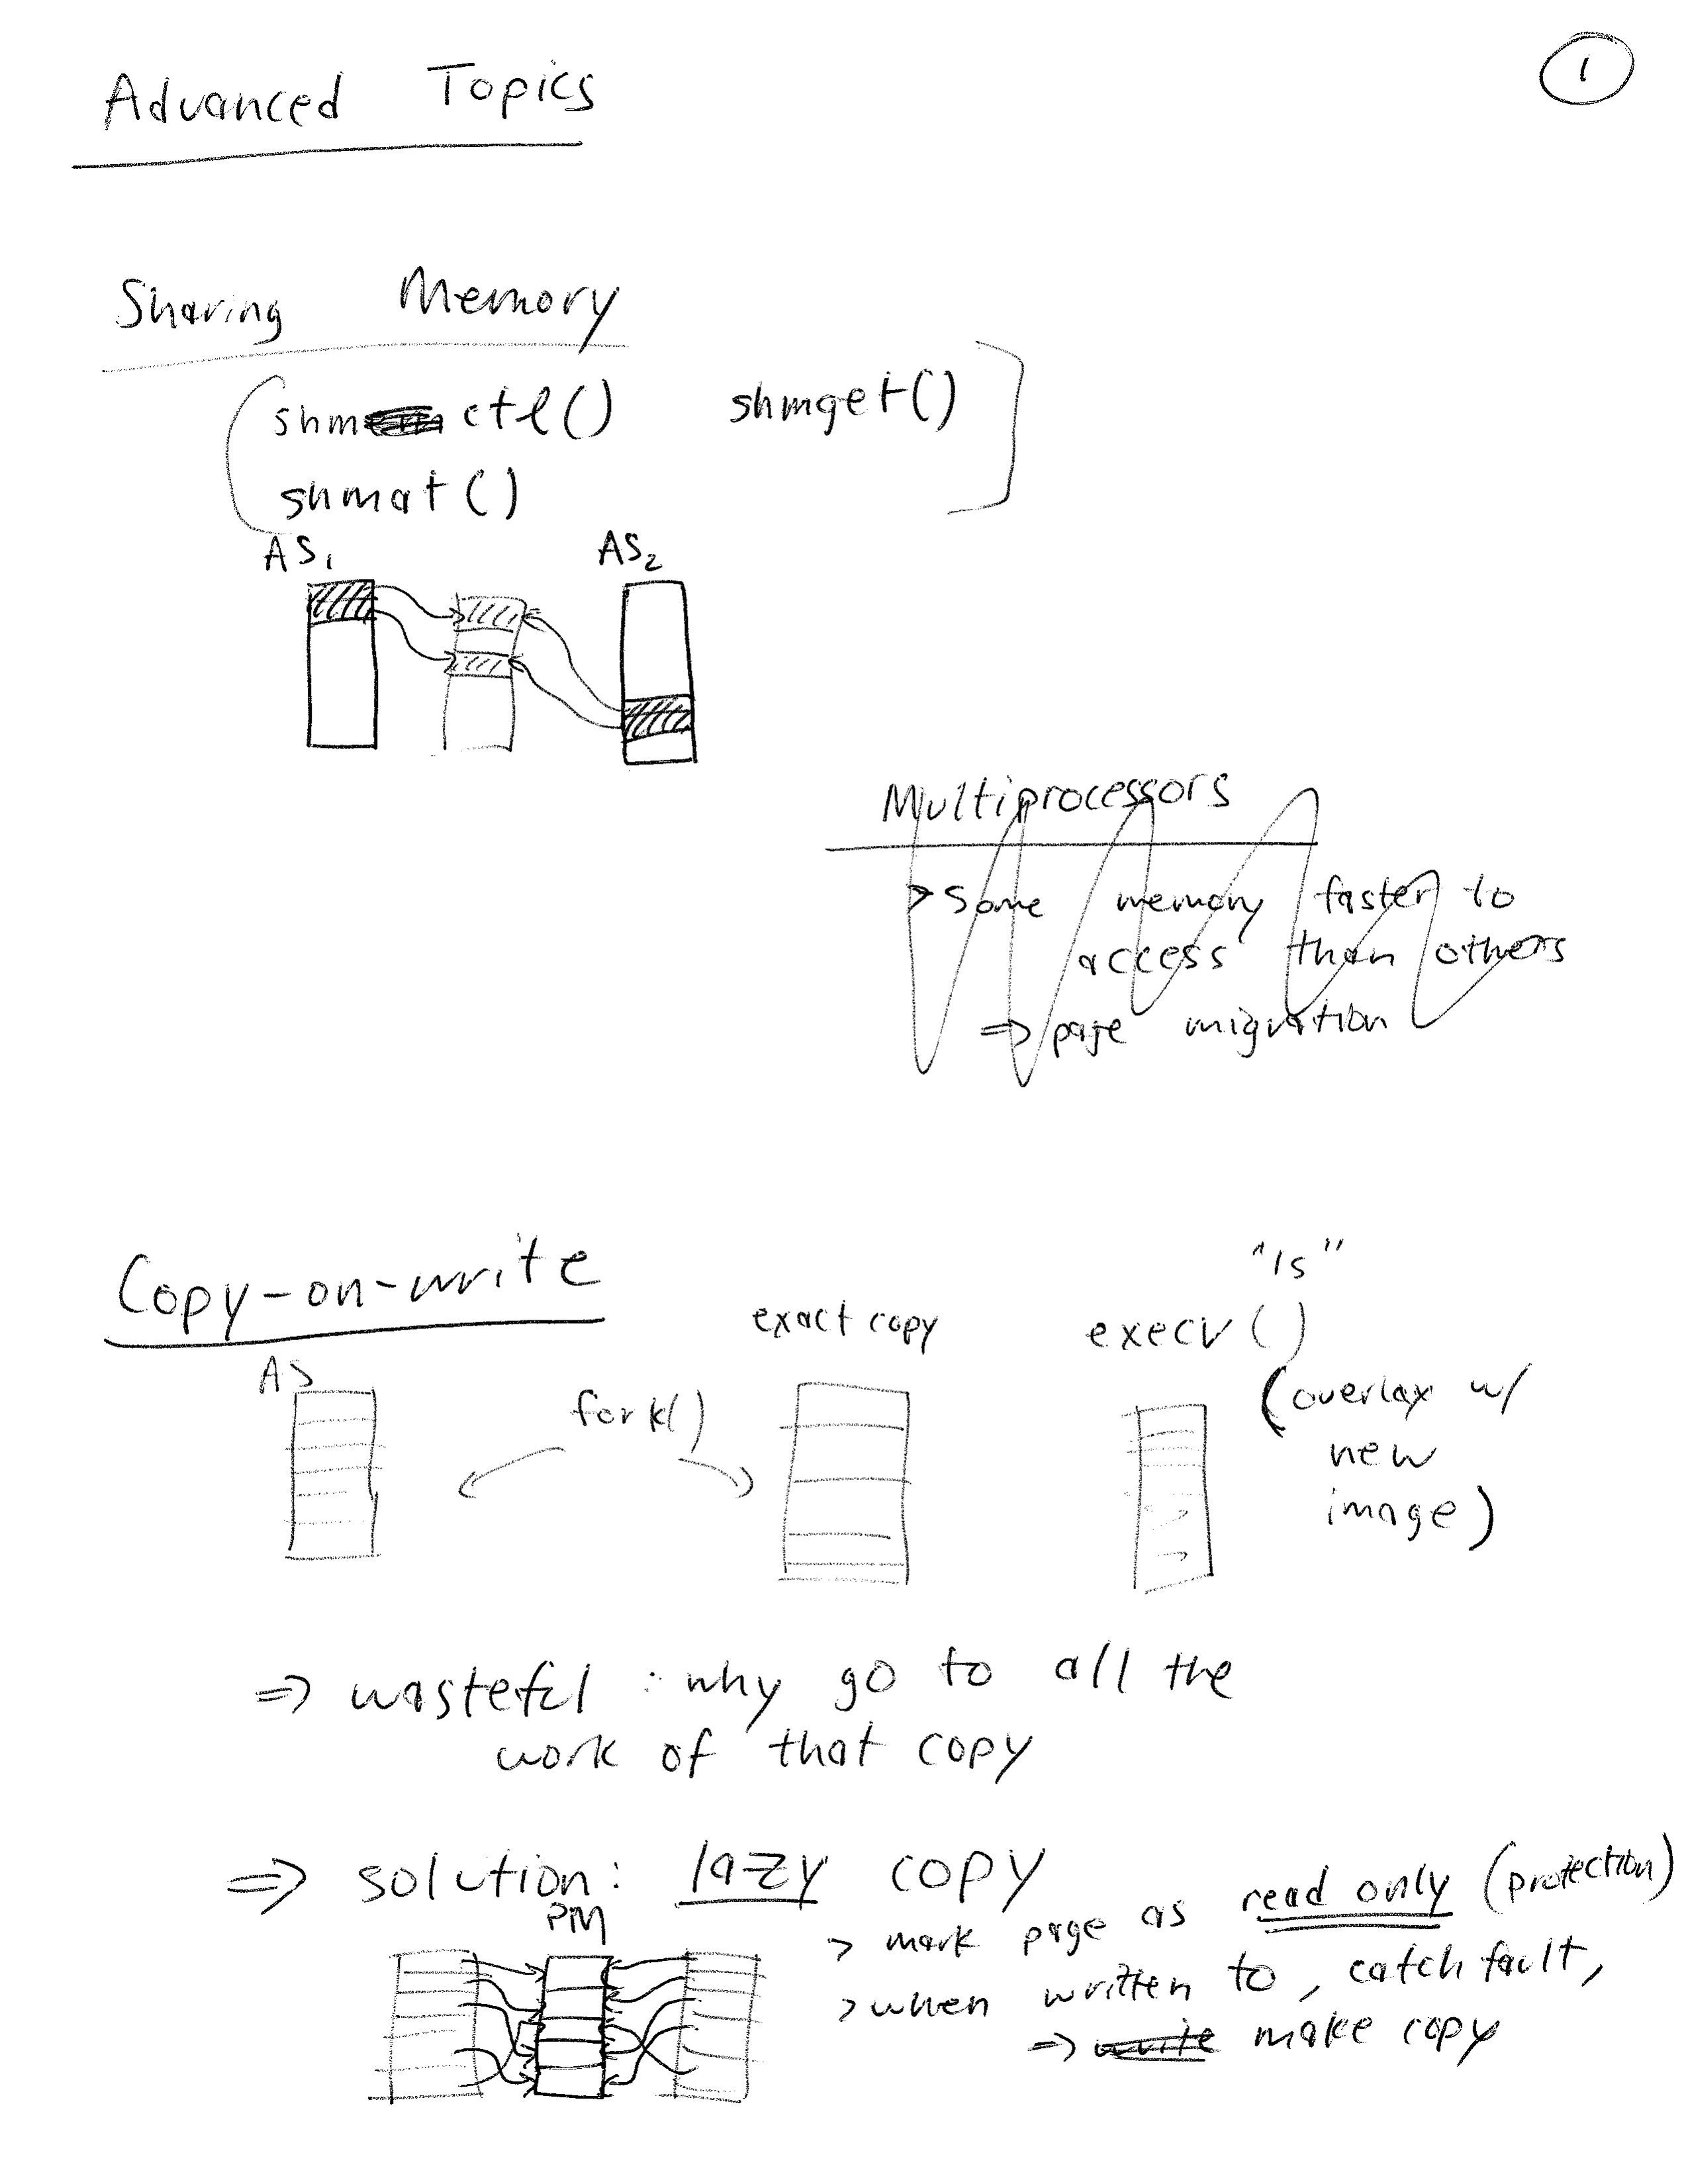 Advanced Topics
1
Sharing Memory
shmctl() shmget()
shmat()
AS1 AS2
Multiprocessors
> Some memory faster to
access than others
=> page migration
Copy-on-write
"ls"
exact copy
execv()
AS
fork()
(overlay w/
new
image)
=> wasteful : why go to all the
work of that copy
=> solution: lazy copy
PM
> mark page as read only (protection)
> when written to, catch fault,
=> write make copy